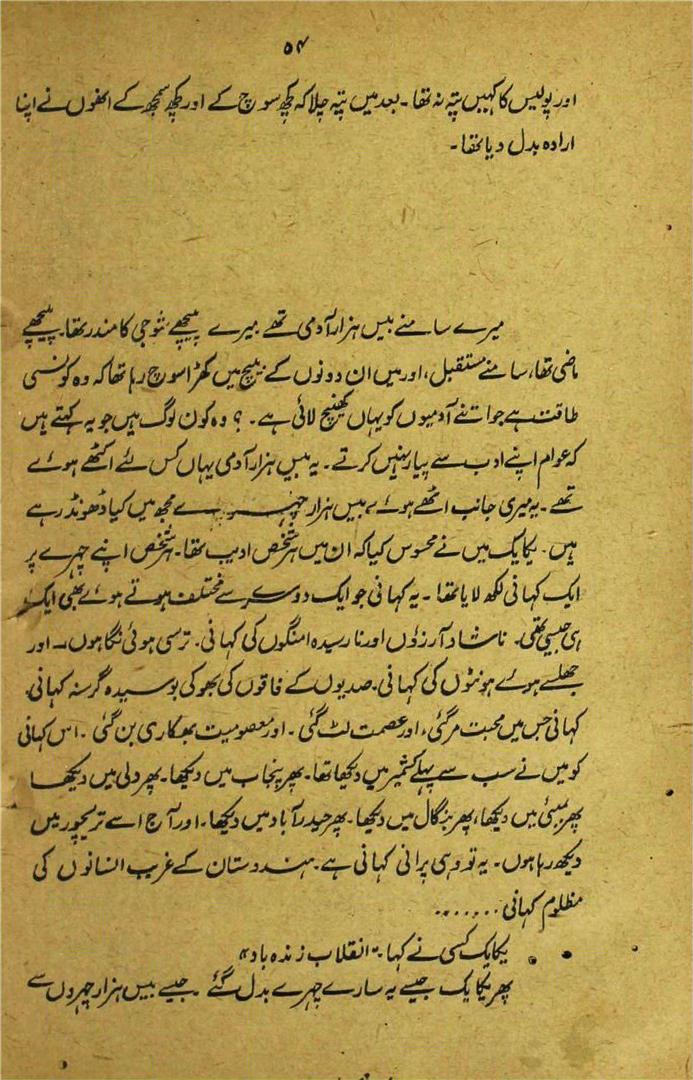 ۵۴
اور پولیس کا کہیں پتہ نہ تھا۔ بعد میں پتہ چلا کہ کچھ سوچ کے اور کچھ سمجھ کے انھوں نے اپنا
ارادہ بدل دیا تھا۔
میرے سامنے بیس ہزار آدمی تھے میرے پیچھے شوجی کا مندر تھا۔ پیچھے
ماضی تھا، سامنے مستقبل، اور میں ان دونوں کے بیچ میں کھڑا سوچ رہا تھا کہ وہ کونسی
طاقت ہے جو اتنے آدمیوں کو یہاں کھینچ لائی ہے۔ ؟ وہ کون لوگ ہیں جو یہ کہتے ہیں
کہ عوام اپنے ادب سے پیار نہیں کرتے۔ یہ بیس ہزار آدمی یہاں کس لئے اکٹھے ہوئے
تھے۔ یہ میری جانب اٹھے ہوئے بیس ہزار چہرے مجھ میں کیا ڈھونڈ رہے
ہیں۔ یکایک میں نے محسوس کیا کہ ان میں ہر شخص ادیب تھا۔ ہر شخص اپنے چہرے پر
ایک کہانی لکھ لایا تھا۔ یہ کہانی جو ایک دوسرے سے مختلف ہوتے ہوئے بھی ایک
ہی جیسی تھی۔ ناشاد آرزوٗں اور نارسیدہ امنگوں کی کہانی۔ ترسی ہوئی نگاہوں۔ اور
جھلسے ہوئے ہونٹوں کی کہانی۔ صدیوں کے فاقوں کی بھوکی بوسیدہ گرسنہ کہانی۔
کہانی جس میں محبت مر گئی، اور عصمت لٹ گئی۔ اور معصومیت بھکاری بن گئی۔ اس کہانی
کو میں نے سب سے پہلے کشمیر میں دیکھا تھا۔ پھر پنجاب میں دیکھا۔ پھر دلی میں دیکھا
پھر بمبئی میں دیکھا، پھر بنگال میں دیکھا۔ پھر حیدر آباد میں دیکھا۔ اور آج اسے تریچور میں
دیکھ رہا ہوں۔ یہ تو وہی پرانی کہانی ہے۔ ہندوستان کے غریب انسانوں کی
مظلوم کہانی .......
یکایک کسی نے کہا۔ "انقلاب زندہ باد"
پھر یکایک جیسے یہ سارے چہرے بدل گئے۔ جیسے بیس ہزار چہروں سے